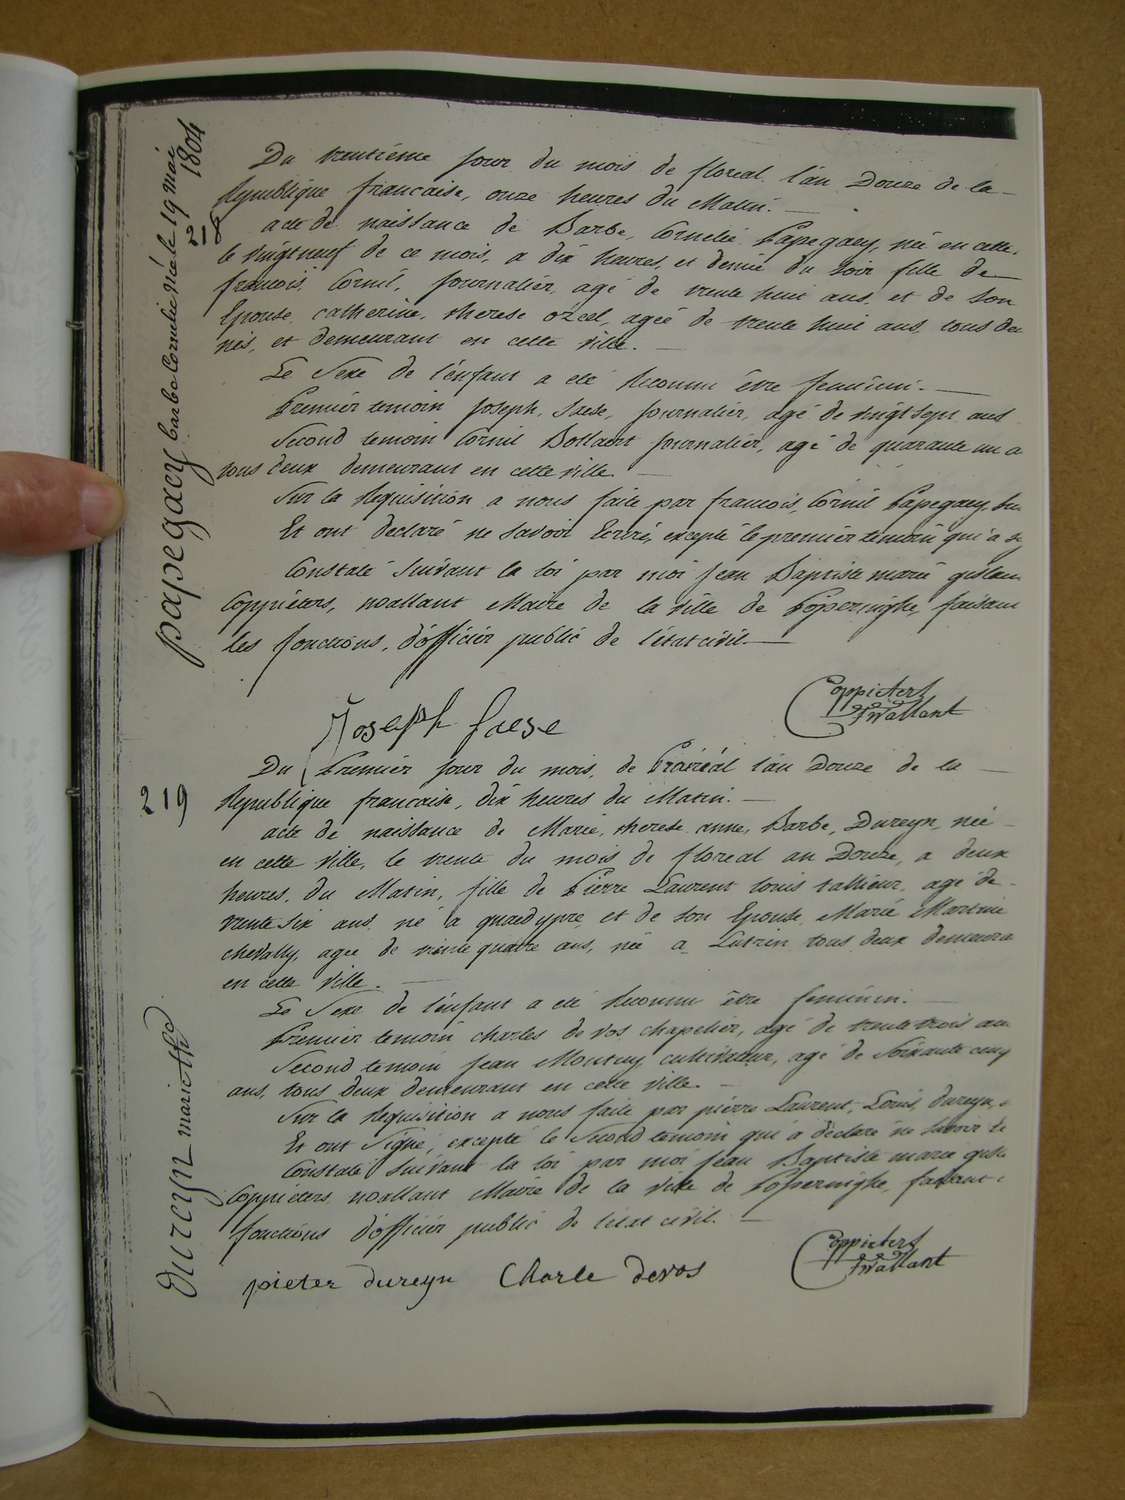 papegaey barbe Cornelie née le 19 mai 1804
218
Du trentième jour du mois de floréal l'an Douze de la
République française, onze heures du Matin.
acte de naissance de Barbe, Cornelie Papegaey, née en cette
le vingtneuf de ce mois, a dix heures, et demie du soir fille de
françois Cornil, journalier, agé de trente huit ans, et de son
Epouse, catherine, therese ozeel, agée de trente huit ans, tous deu
nés, et demeurant en cette ville.
Le Sexe de l'énfant a eté Reconnu être feminin.
Premier temoin Joseph, Saese, journalier, agé de vingt sept ans
Second temoin Cornil Bollaert journalier, agé de quarante un a
tous deux demeurant en cette ville.
Sur la Requisition a nous faite par françois, Cornil Papegaey
Et ont declaré ne savoir Ecrire, excepté le premier temoin qui a
Constaté Suivant la loi par moi Jean Baptiste marie
Coppieters, wallant Maire de la ville de Poperinghe, faisant
les fonctions, d'officier public de l'état civil.
Joseph Saese
Coppieters
wallant
219
Du Premier jour du mois, de Prairéal l'an Douze de la
République francaise, dix heures du Matin.
acte de naissance de Marie, therese anne, Barbe, Dureyn, née
en cette ville, le trente du mois de floreal an Douze, a deux
heures, du Matin, fille de Pierre Laurent Louis tallieur, agé de
trente six ans, né a quaedypre, et de son Epouse, Marie Martine
chevally, agee de trente quatre ans, née a Lutrin tous deux demeura
en cette ville.
Le Sexe de l'énfant a eté Reconnu être feminin.
Premier temoin charles de vos chapelier, agé de trente trois an
Second temoin Jean Moutuy cultivateur, agé de Soixante cinq
ans, tous deux demeurant en cette ville.
Sur la Requisition a nous faite par pierre Laurent, Louis, dureyn,
Et ont Signé, excepté le Second temoin qui a déclaré ne savoir
Constaté Suivant la loi par moi Jean Baptiste marie
Coppieters, wallant Maire de la ville de Poperinghe, faisant
fonctions d'officier public de l'état civil.
Dureyn marie the
pieter dureyn Charle devos
Coppieters
wallant